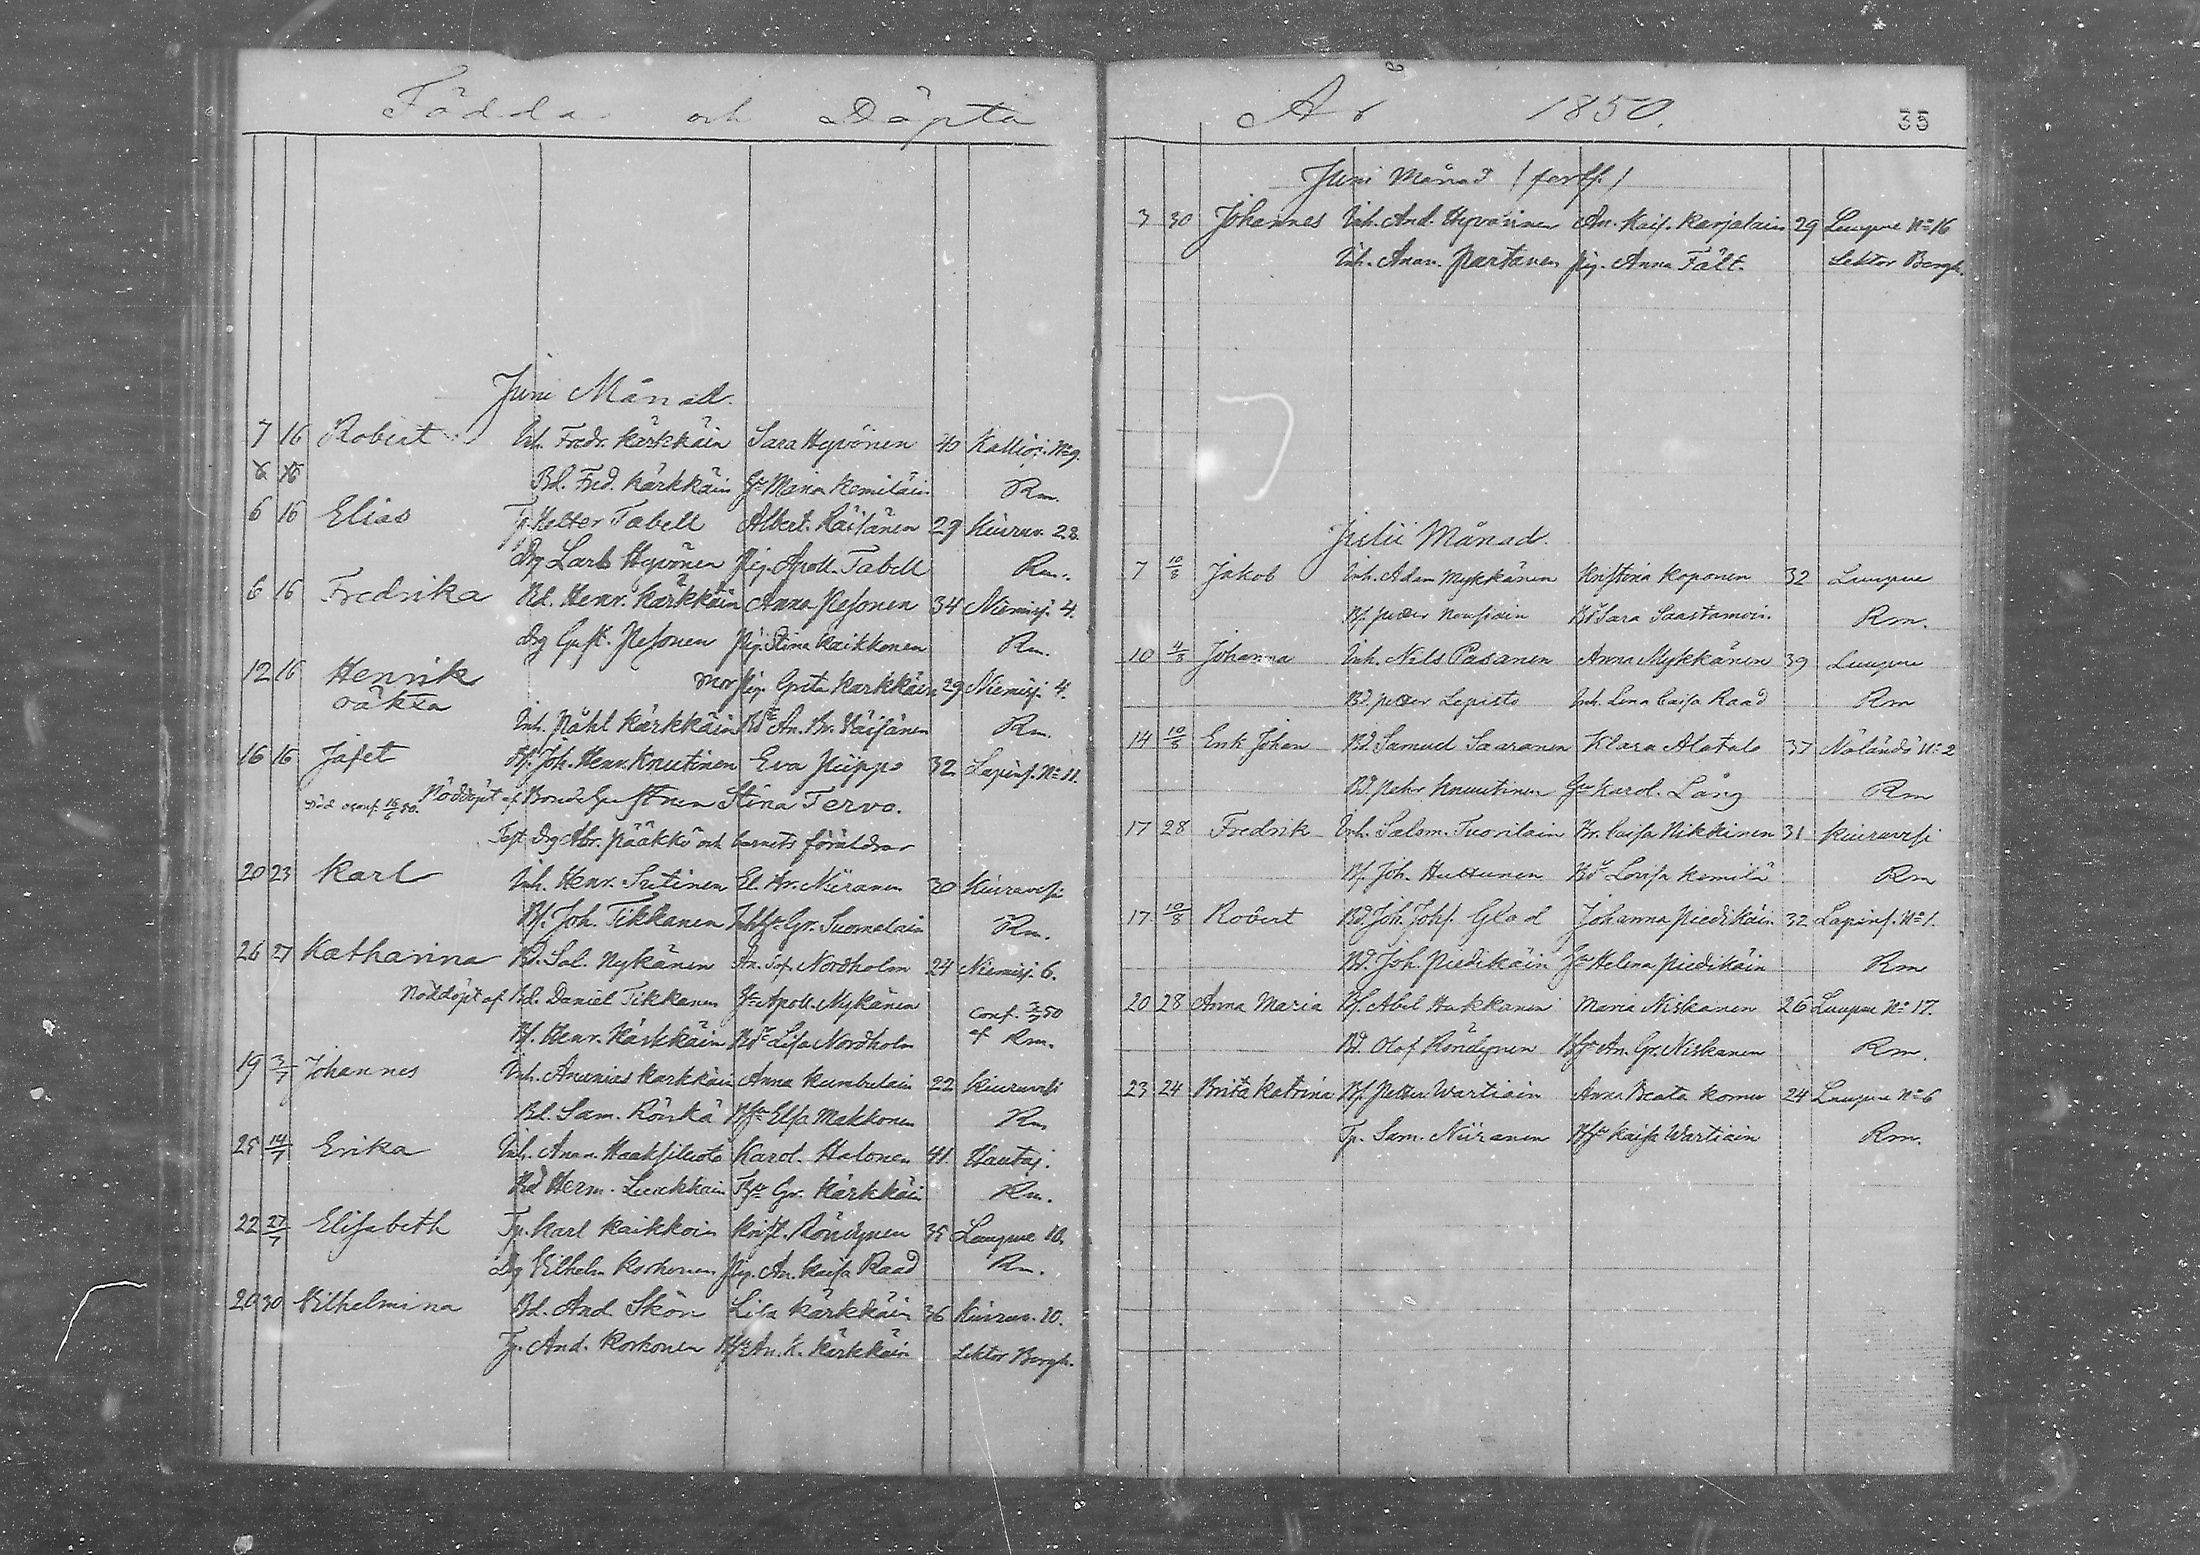 Födda och Döpta
Juni Månad.
7 16 Robert Inh. Fredr. Kärkkäin Sara Hyvönen 40 Kallioj. No 9.
6 16 Bd. Fred. Kärkkäin Ga Maria Kemiläin Rm.
6 16 Elias Tp. Helter Tabell Albert. Räisänen 29 Kiuruv. 28.
Drg Lars Hyvönen Pig. Apoll. Tabell Rm.
6 16 Fredrika Bd. Henr. Kärkkäin Anna Pesonen 34 Niemisj. 4.
Drg Gust. Pesonen Pig. Stina Kaikkonen Rm.
12 16 Henrik Mor Pig. Greta Karkkäin 29 Niemisj. 4.
oäkta
Inh. Påhl Kärkkäin Bde An. Br. Räisänen Rm.
16 16 Jafet Bf. Joh. Henr. Knutinen Eva Piippo 32 Lapinj. No 11.
Nöddöpt af Bonde Stina Tervo.
Test. Drg Abr. Pääkkö och barnets föräldrar
20 23 Karl Inh. Henr. Sutinen El. Av. Niiranen 30 Kiuruvesi
Bf. Joh. Tikkanen Gr. Suomalain Rm.
26 27 Katharina Bd. Sal. Nykänen An. Sof. Nordholm 24 Niemisj. 6.
Nöddöpt af Bd. Daniel Tikkanen Ga Apoll. Nykänen Conf. 3/7 50
Bf. Henr. Kärkkäin Bde Lisa Nordholm af Rm.
19 3/7 Johannes Inh. Ananias Karkkäin Anna Kumbulain 22 Kiuruvesi
Bd. Sam. Rönkä Bfa Elsa Makkonen Rm
25 14/7 Erika Inh. Anan. Haaksiluoto Karol. Halonen 41 Hautaj.
Bd Herm. Luukkain Bfa Gr. Kärkkäin Rm.
22 27/7 Elisabeth Tp. Karl Kaikkoin Krist. Röndynen 35 Luupue 10.
Dg Vilhelm Korhonen Pig. An. Kaisa Raad Rm.
20 30 Vilhelmina Bd. And. Skön Lisa Kärkkäin 36 Kiuruv. 10.
Tp. And. Korhonen Bfa An. K. Kärkkäin Lektor Bergh.
År 1850. 35
Juni Månad /forts./
3 30 Johannes Inh. And. Hyvärinen An. Kais. Karjalain 29 Luupue No 16
Inh. Anan. Partanen Pig. Anna Fält. Lektor Bergh.
Julii Månad.
7 10/8 Jakob Inh. Adam Mykkänen Kristina Koponen 32 Luupue
Bf. Petter Nousiain Bde Sara Saastamoin. Rm.
10 4/8 Johanna Inh. Nils Pasanen Anna Mykkänen 39 Luupue
Bd. Petter Lepistö Inh. Lena Caisa Raad Rm
14 10/8 Erik Johan Bd. Samuel Saaranen Klara Alatalo 37 Näländö No 2
Bd. Pehr Knuutinen Ga Karol. Lång Rm
17 28 Fredrik Inh. Salom. Tuorilain Br. Caisa Nikkinen 31 Kiuruvesi
Bf. Joh. Huttunen Bde Lovisa Kemilä Rm
17 10/8 Robert Bd. Joh. Johs. Glad Johanna Piedikäin 32 Lapinj. No 1.
Bd. Joh. Piedikäin Ga Helena Piedikäin Rm
20 28 Anna Maria Bf. Abel Hakkanen Maria Niskanen 26 Luupue No 17.
Bd. Olof Röndynen Bfa An. Gr. Niskanen Rm.
23 24 Brita Katrina Bf. Petter Wartiain Anna Beata Komu 24 Luupue No 6
Tp. Sam. Niiranen Bfa Kaisa Wartiain Rm.